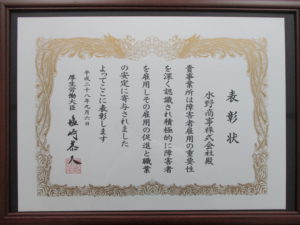 表彰状
水野商事株式会社殿
貴事業所は障害者雇用の重要性
を深く認識され積極的に障害者
を雇用しその雇用の促進と職業
の安定に寄与されました
よってここに表彰します
平成二十八年九月六日
厚生労働大臣 塩崎恭久